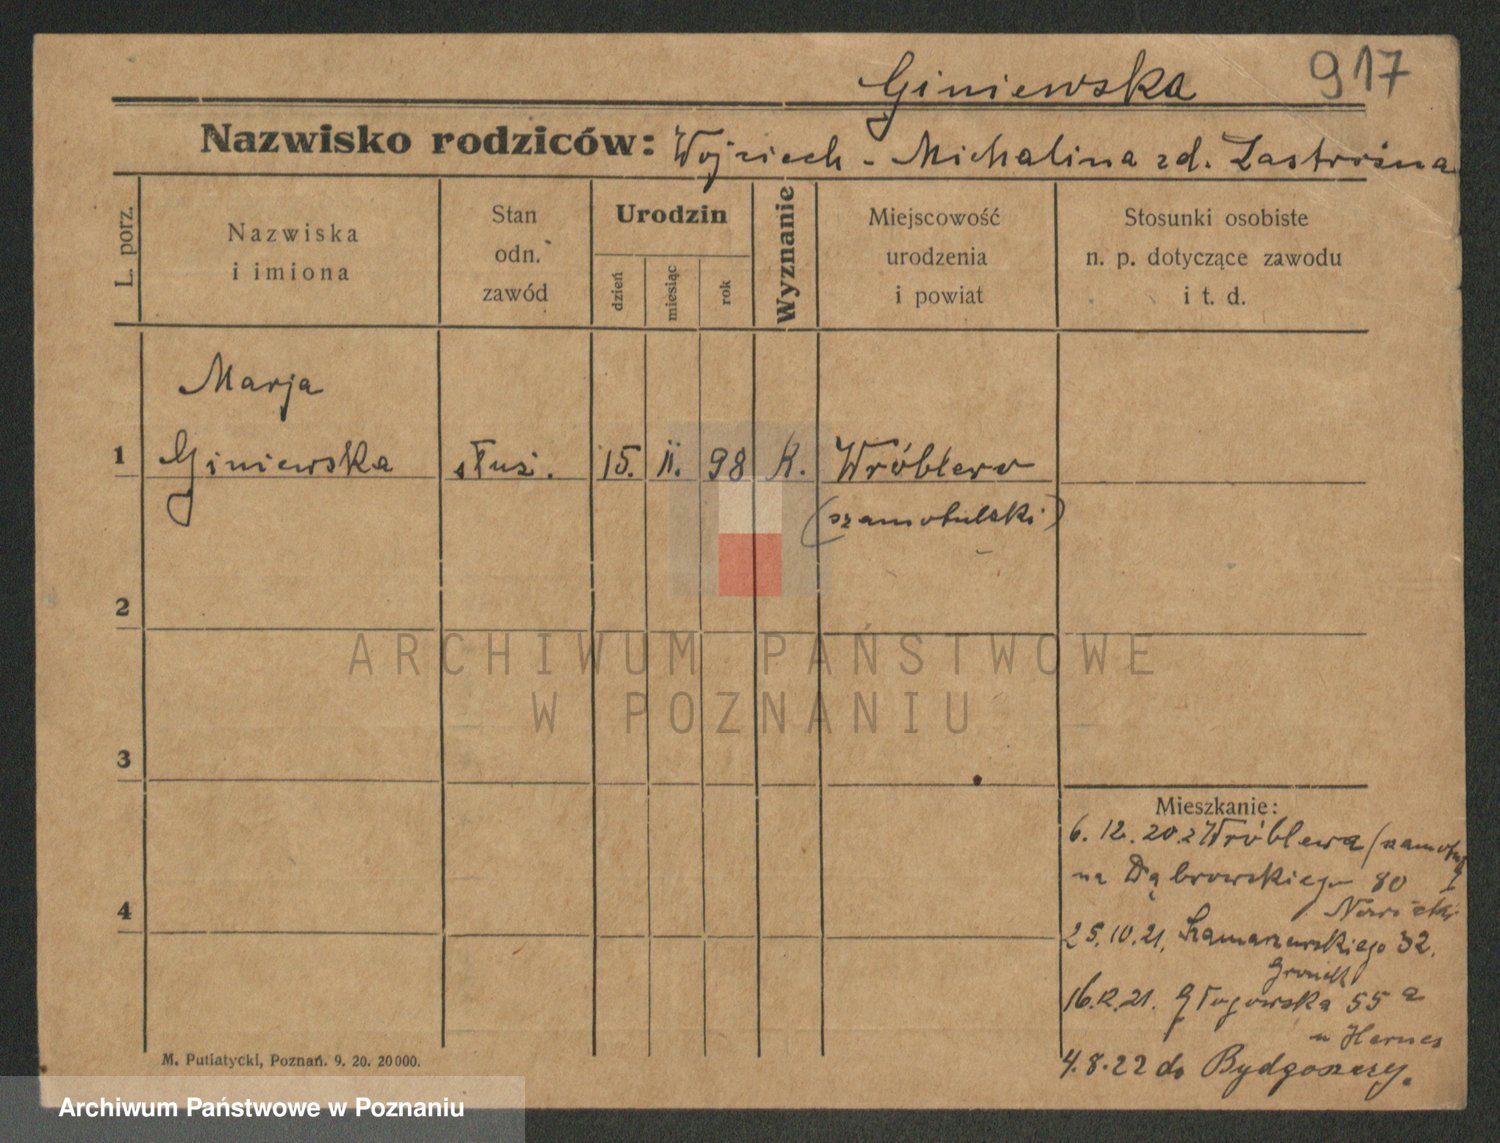 Giniewska 917
Nazwisko rodziców: Wojciech - Michalina zd. Zastróżna
L. porz.
Nazwiska
i imiona
Stan
odn.
zawód
Urodzin
dzień
miesiąc
rok
Wyznanie
Miejscowość
urodzenia
i powiat
Stosunki osobiste
n. p. dotyczące zawodu
i t. d.
Marja
1 Giniewska służ. 15. II. 98 K. Wróblewo
(szamotulski)
2
ARCHIWUM PAŃSTWOWE
W POZNANIU
3
Mieszkanie:
6. 12. 20. z Wróblewa
na Dąbrowskiego 80 I
4
25. 10. 21. Szamarzewskiego 32.
16.12.21. Głogowska 55 a
u Hernes
4.8.22 do Bydgoszczy.
M. Putiatycki, Poznań. 9. 20. 20000.
Archiwum Państwowe w Poznaniu